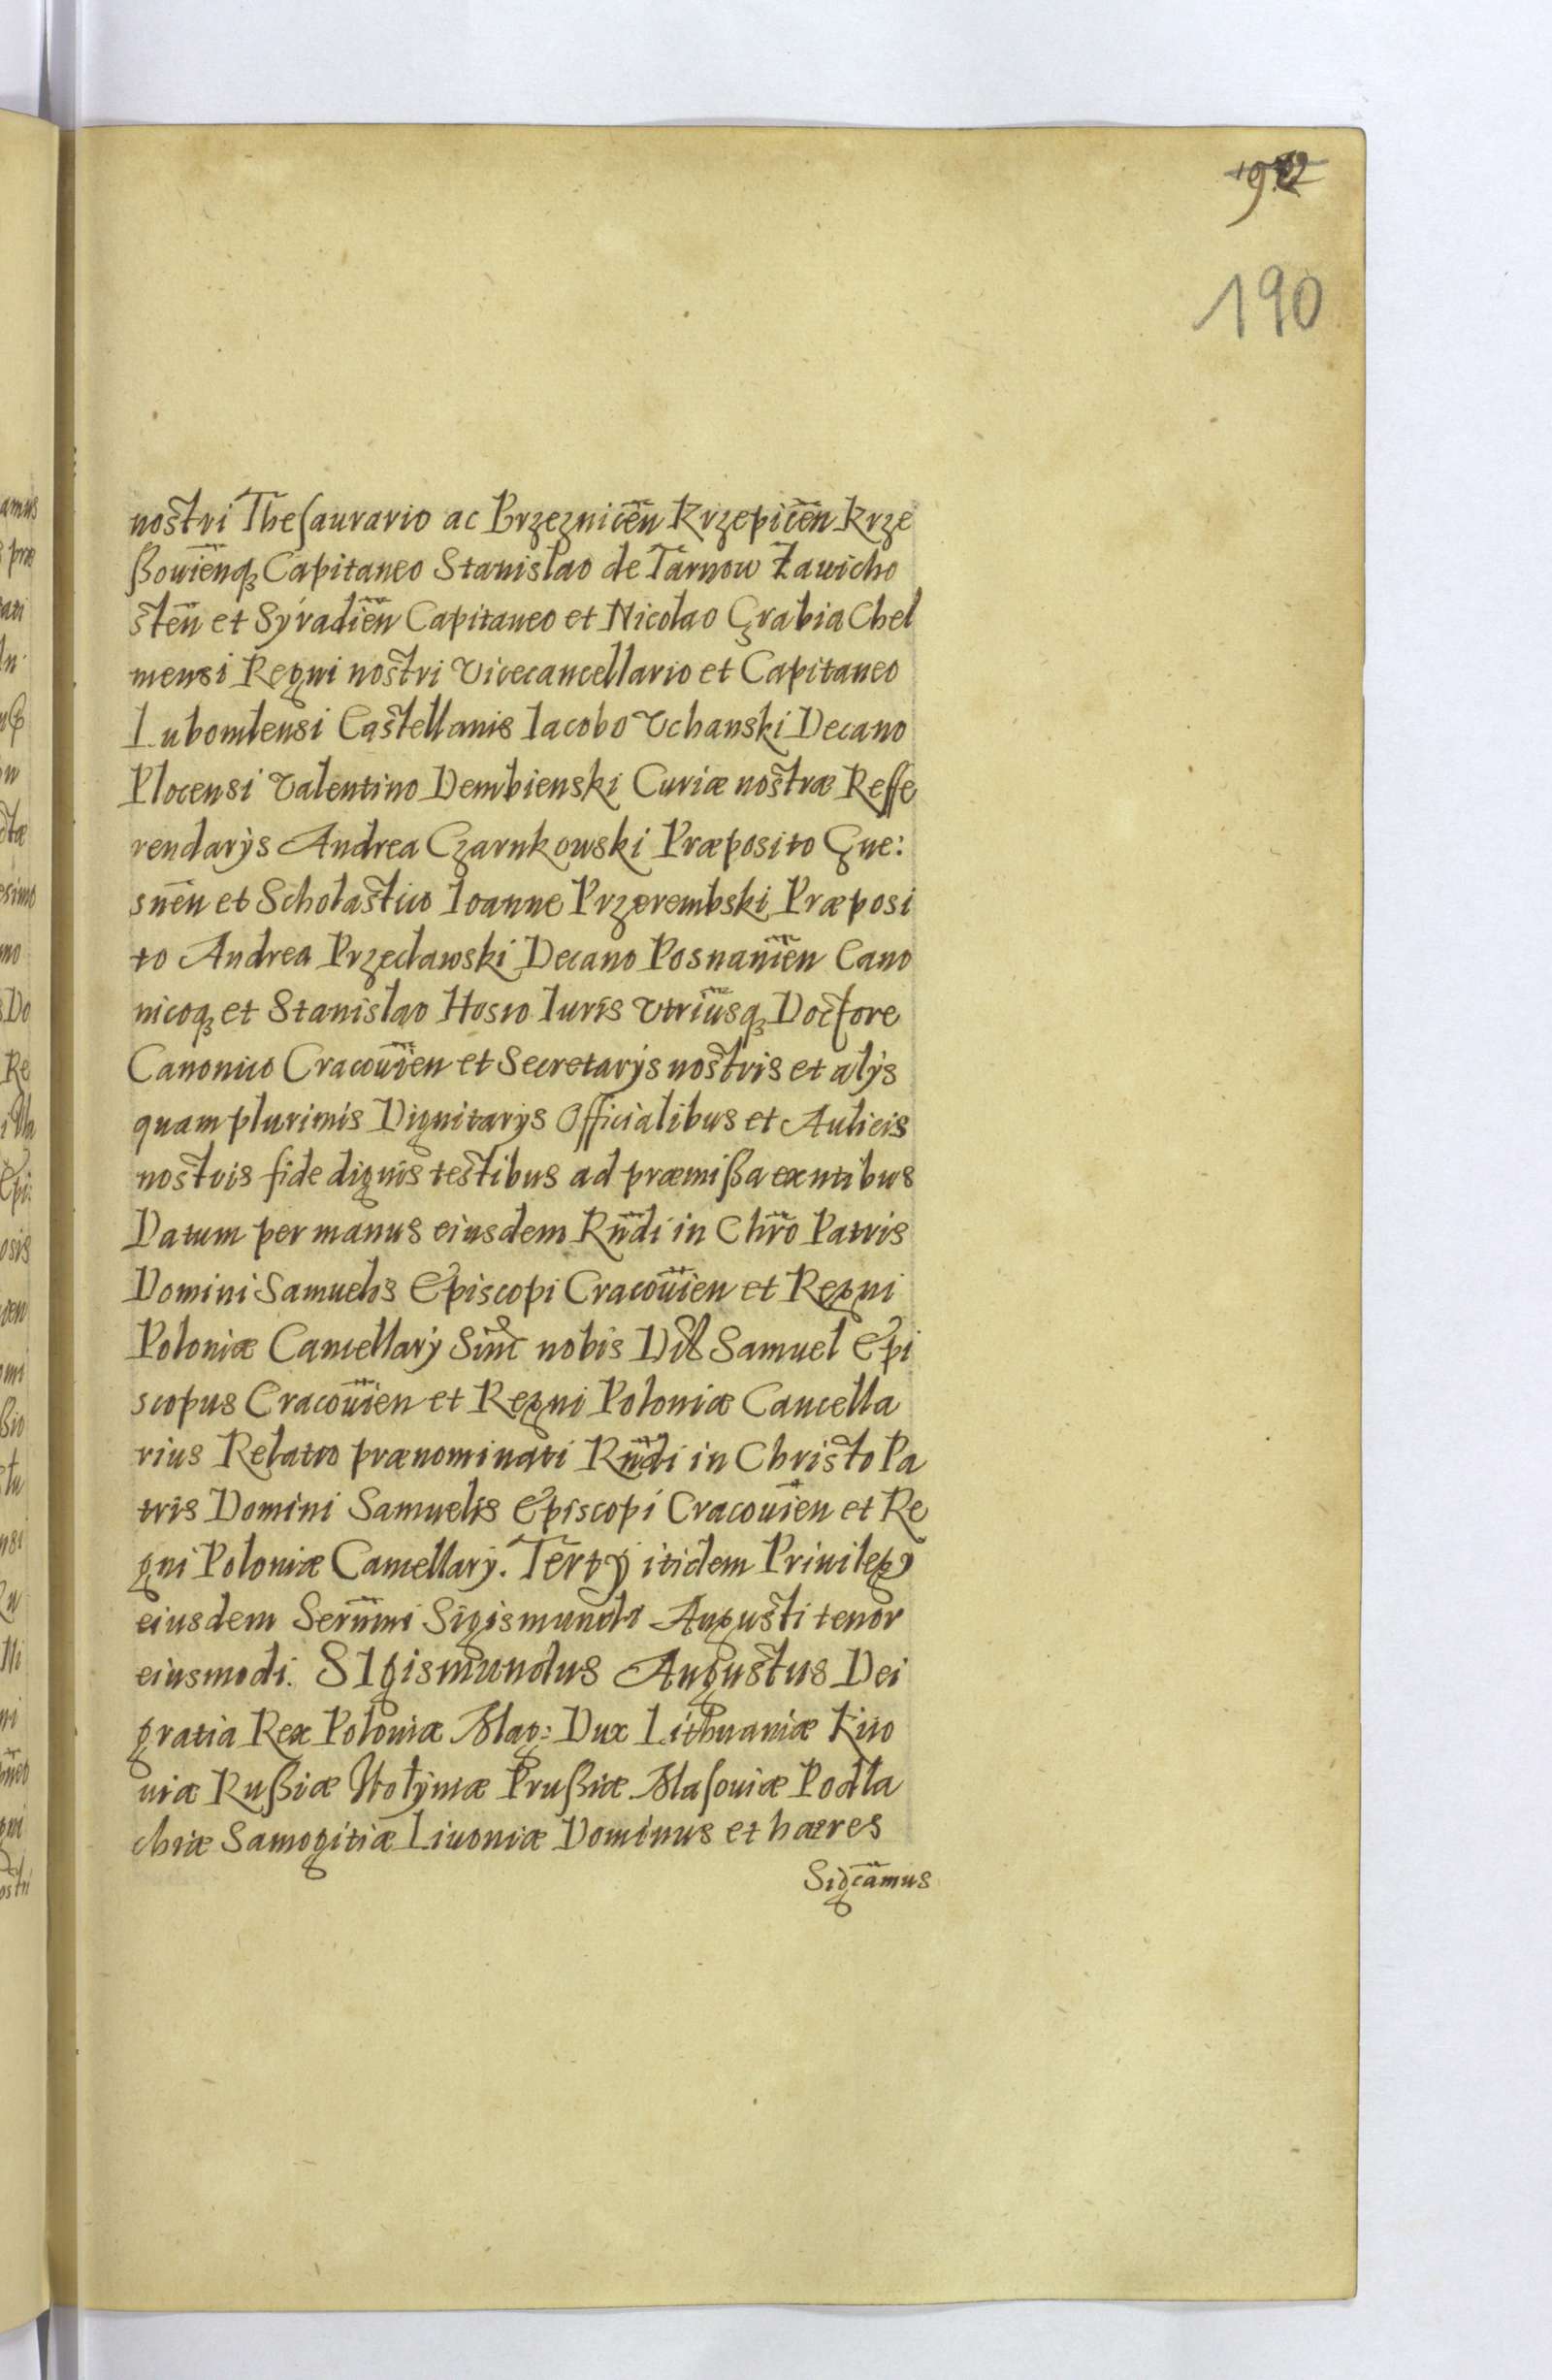 190
nostri Thesaurario ac Brzeznicen̄ Krzepicen̄ Krze
ßouien̄q₃ Capitaneo Stanislao de Tarnow Zawicho
sten̄ et Syradien̄ Capitaneo et Nicolao Grabia Chel
mensi Regni nostri Vicecancellario et Capitaneo
Lubomlensi Castellanis Iacobo Vchanski Decano
Plocensi Valentino Dembienski Curiæ nostræ Reffe
rendarys Andrea Czarnkowski Præposito Gne:
snen̄ et Scholastico Ioanne Przerembski Præposi
to Andrea Przeclawski Decano Posnanien̄ Cano
nicoq₃ et Stanislao Hosio Iuris Vtriusq₃ Doctore
Canonico Cracouien̄ et Secretarys nostris et alys
quam plurimis Dignitarys Officialibus et Aulicis
nostris fide dignis testibus ad præmißa exntibus
Datum per manus eiusdem Rn̄di in Chr̄o Patris
Domini Samuelis Episcopi Cracouien̄ et Regni
Poloniæ Cancellary Sinc nobis Dil Samuel Epi
scopus Cracouien̄ et Regni Poloniæ Cancella
rius Relatio prænominati Rn̄di in Christo Pa
tris Domini Samuelis Episcopi Cracouien̄ et Re
gni Poloniæ Cancellary. Terty itidem Priuilegy
eiusdem Sern̄mi Sigismundi Augusti tenor
eiusmodi. SIgismundus Augustus Dei
gratia Rex Poloniæ Mag: Dux Lithuaniæ Kiio
uiæ Rußiæ Wolyniæ Prußiæ Masouiæ Podla
chiæ Samogitiæ Liuoniæ Dominus et hæres
Sigcamus